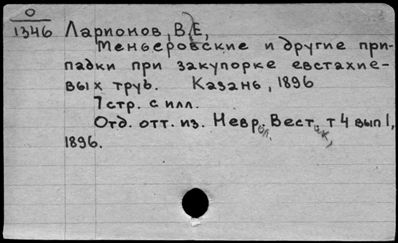 О
1346 Ларионов, В. Е,
Меньеровские и другие при-
падки при закупорке евстахие-
вых труб. Казань, 1896
7 стр. с илл.
Отд. отт. из. Невр. Вест, т 4 вып 1,
1896.